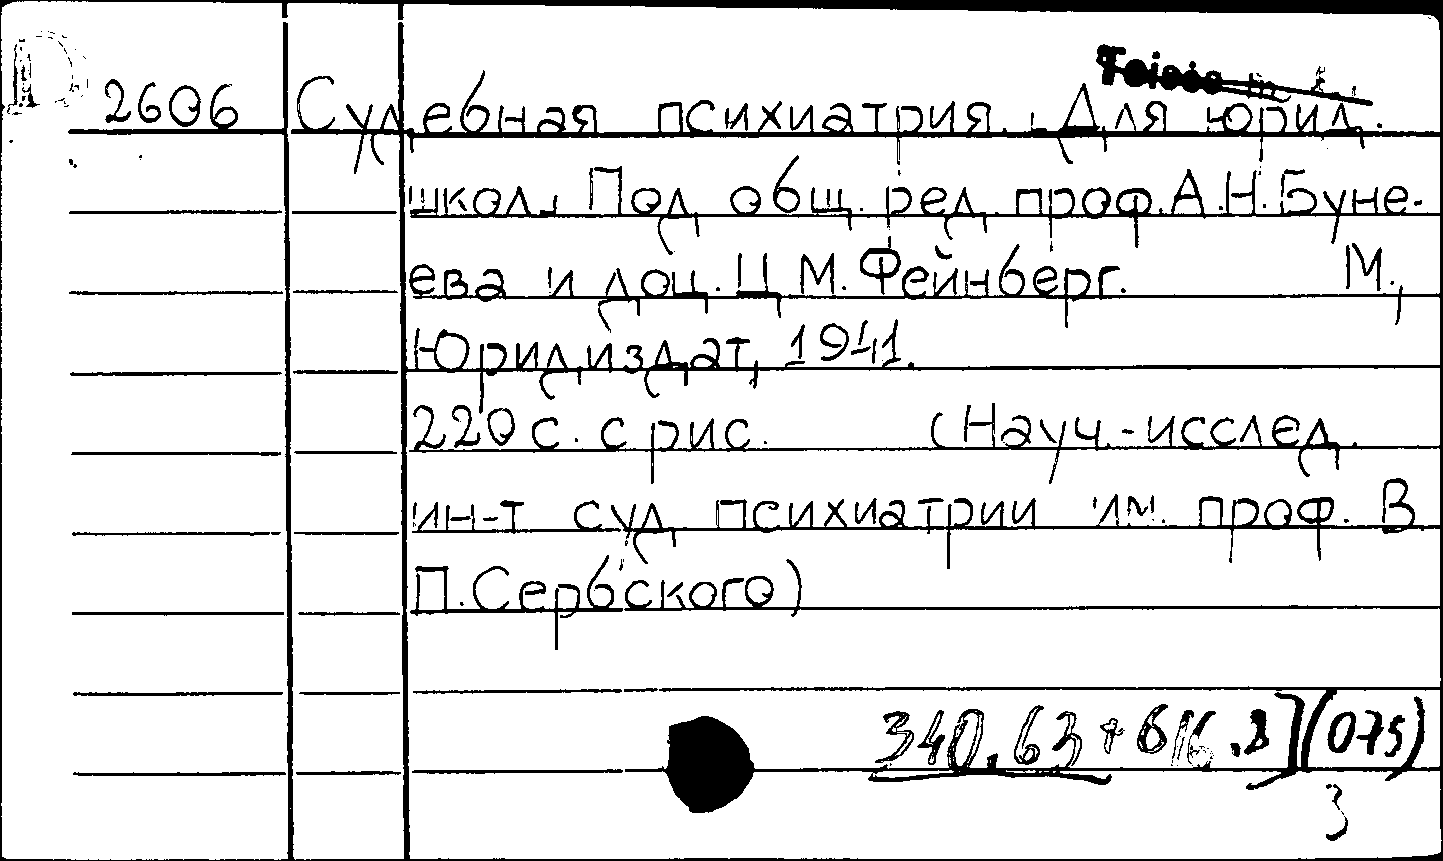 D
2606 Судебная психиатрия. Для юрид.
школ. Под общ. ред. проф. А.Н.Буне-
ева и доц. Ц.М.Фейнберг. М.,
Юрид.издат, 1941.
220 с. с рис. (Науч.-исслед.
ин-т суд. психиатрии им. проф. В.
П.Сербского)
340.63+616.8](075)
3